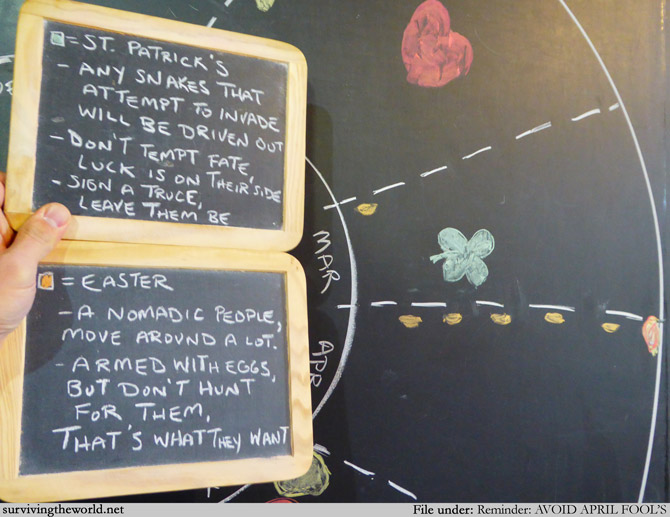 = ST. PATRICK'S
- ANY SNAKES THAT
ATTEMPT TO INVADE
WILL BE DRIVEN OUT
- DON'T TEMPT FATE,
LUCK IS ON THEIR SIDE
- SIGN A TRUCE,
LEAVE THEM BE
= EASTER
- A NOMADIC PEOPLE,
MOVE AROUND A LOT.
- ARMED WITH EGGS,
BUT DON'T HUNT
FOR THEM,
THAT'S WHAT THEY WANT
MAR
APR
survivingtheworld.net
File under: Reminder: AVOID APRIL FOOL'S